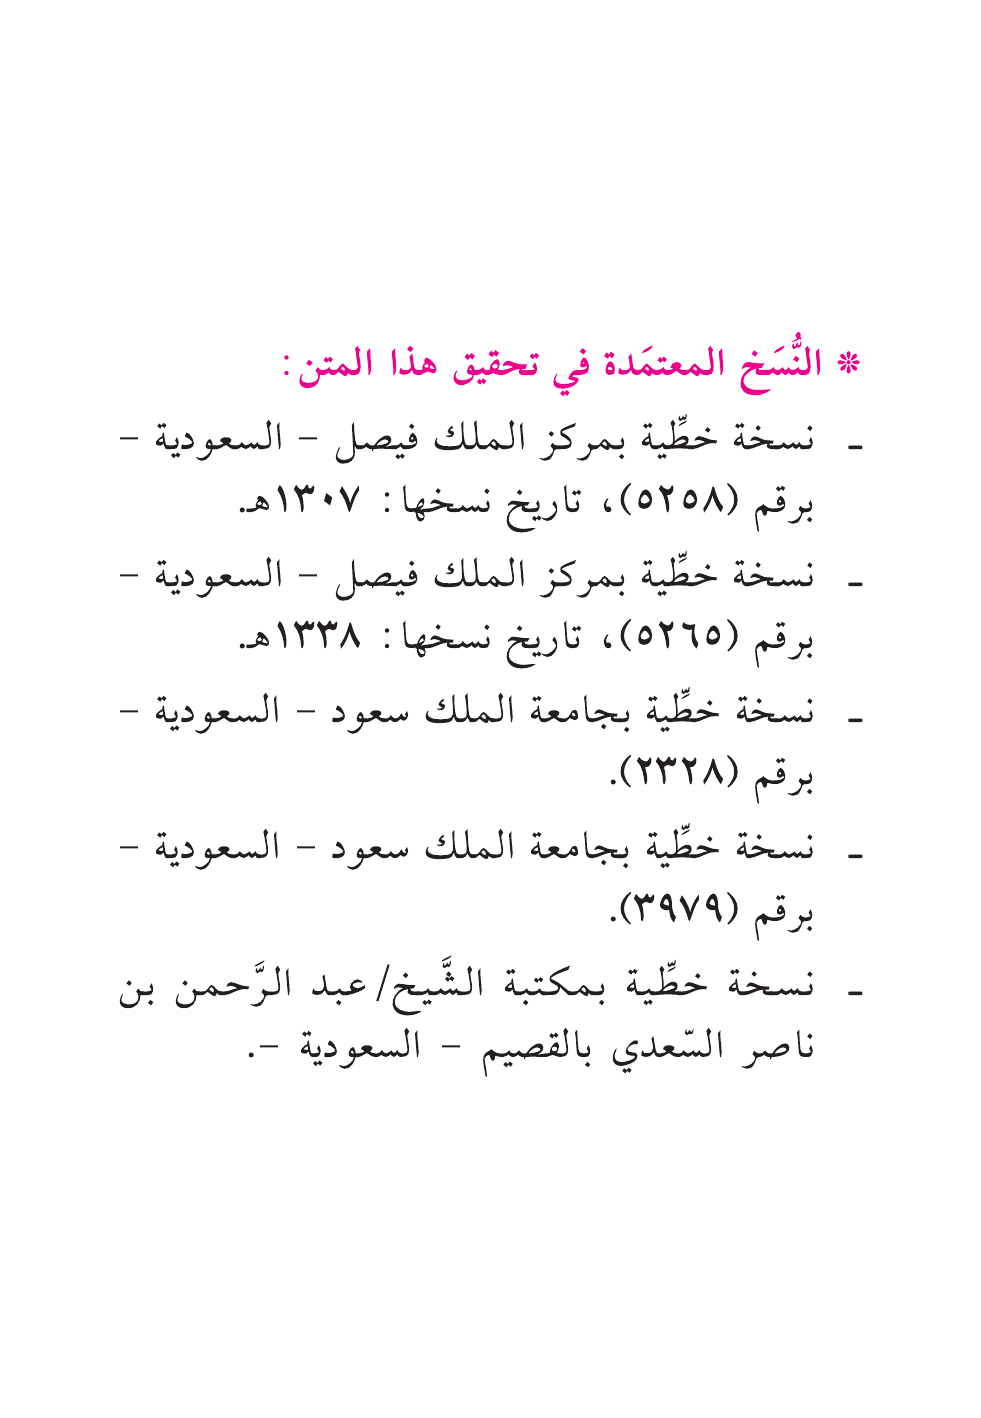 ❊ النُّسَخ المعتمَدة في تحقيق هذا المتن:
ـ نسخة خطِّية بمركز الملك فيصل – السعودية –
برقم (٥٢٥٨)، تاريخ نسخها: ١٣٠٧هـ.
ـ نسخة خطِّية بمركز الملك فيصل – السعودية –
برقم (٥٢٦٥)، تاريخ نسخها: ١٣٣٨هـ.
ـ نسخة خطِّية بجامعة الملك سعود – السعودية –
برقم (٢٣٢٨).
ـ نسخة خطِّية بجامعة الملك سعود – السعودية –
برقم (٣٩٧٩).
ـ نسخة خطِّية بمكتبة الشَّيخ/ عبد الرَّحمن بن
ناصر السّعدي بالقصيم – السعودية –.